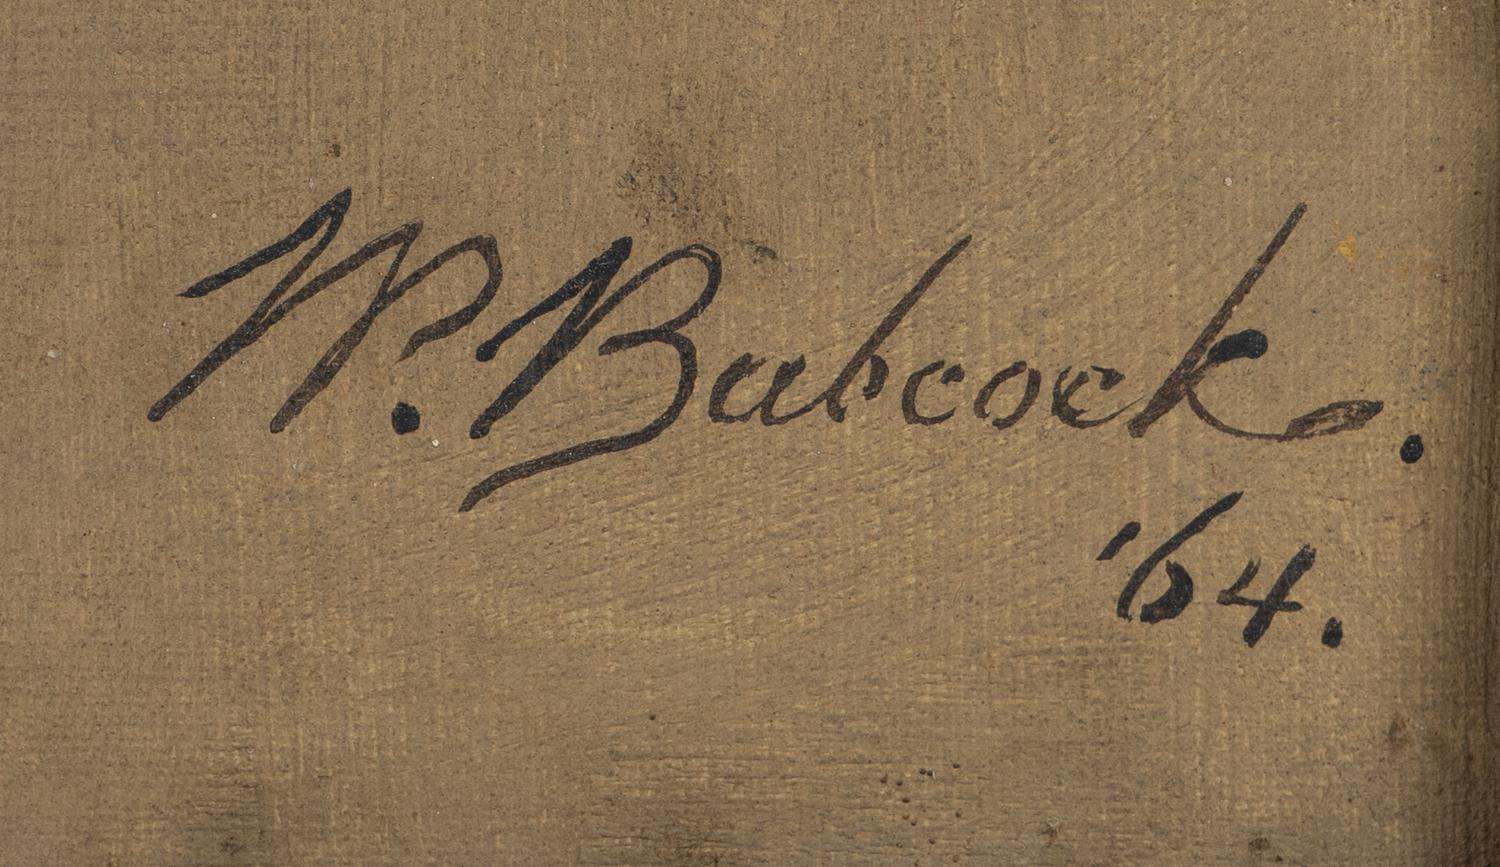 W. Babcock.
'64.